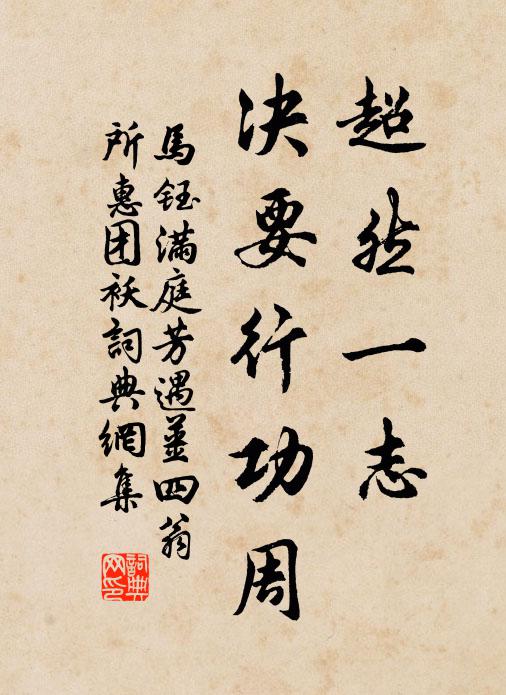 超然一志
决要行功周
馬鈺满庭芳遇姜四翁
所惠团袄詞典網集
詞典
网印